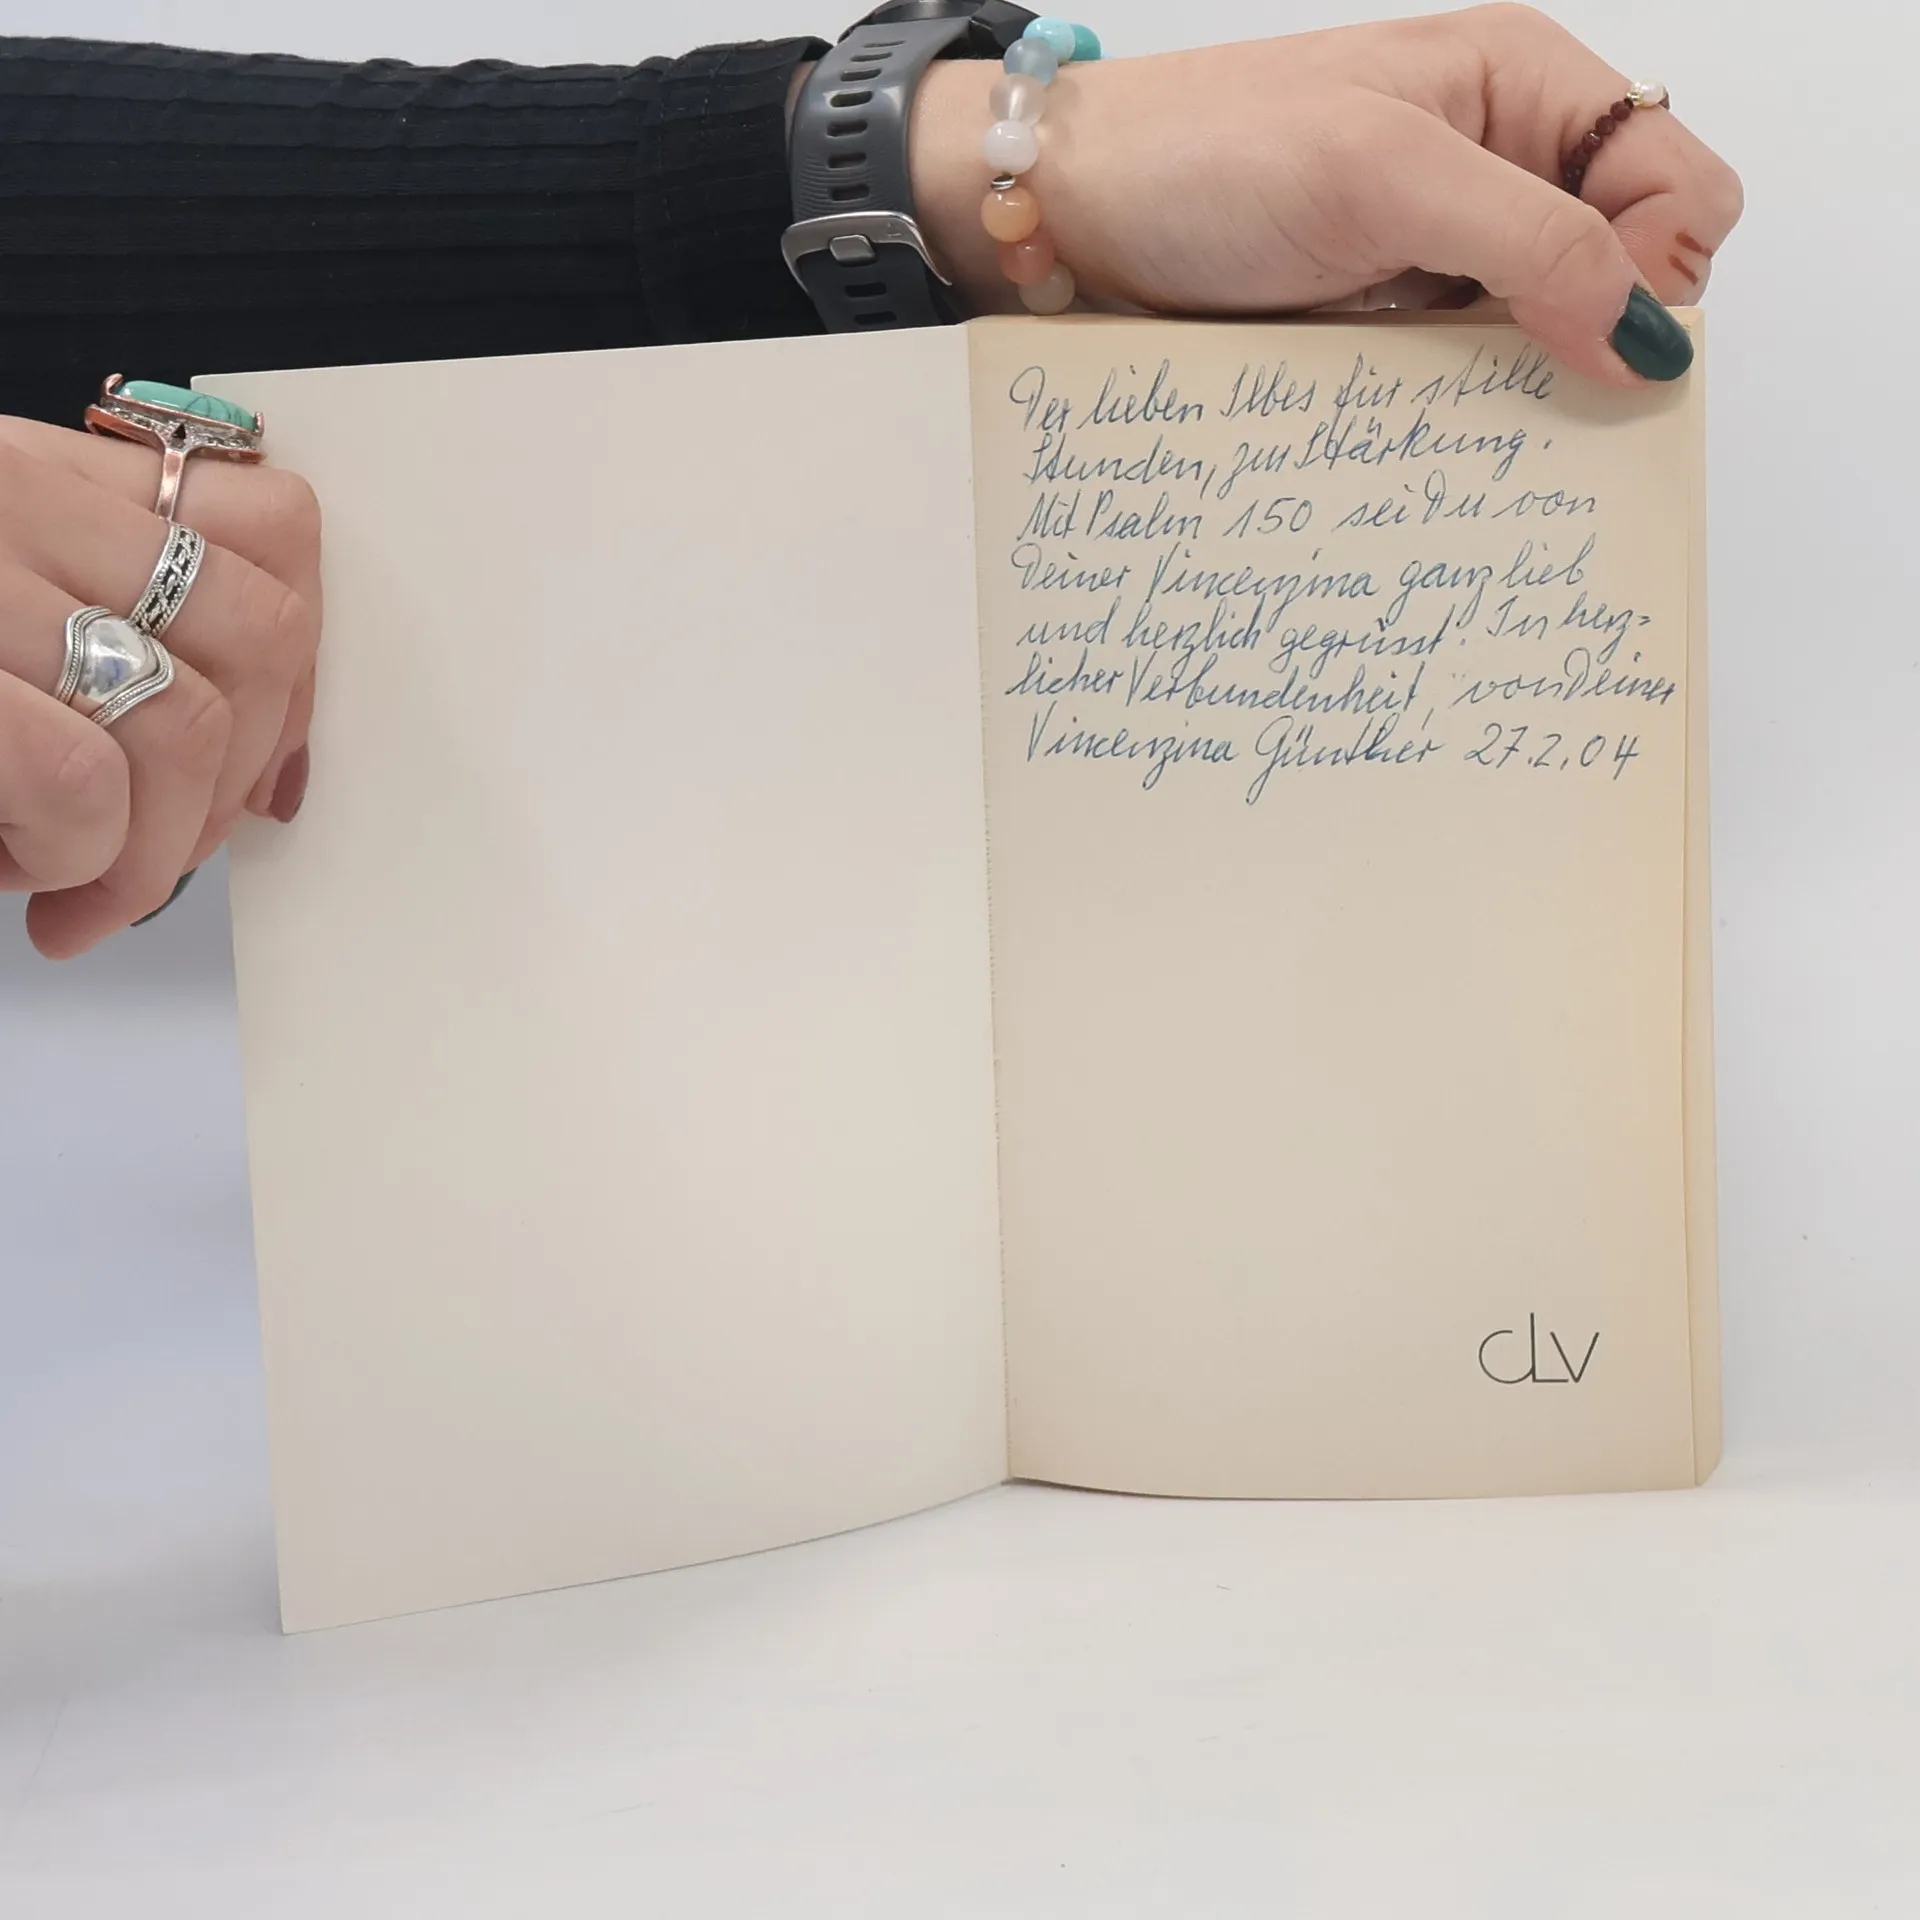 Der lieben Ilbes für stille
Stunden, zur Stärkung.
Mit Psalm 150 sei Du von
Deiner Vincenzina ganz lieb
und herzlich gegrüsst. In herz=
licher Verbundenheit, von Deiner
Vincenzina Günther 27.2.04
CLV